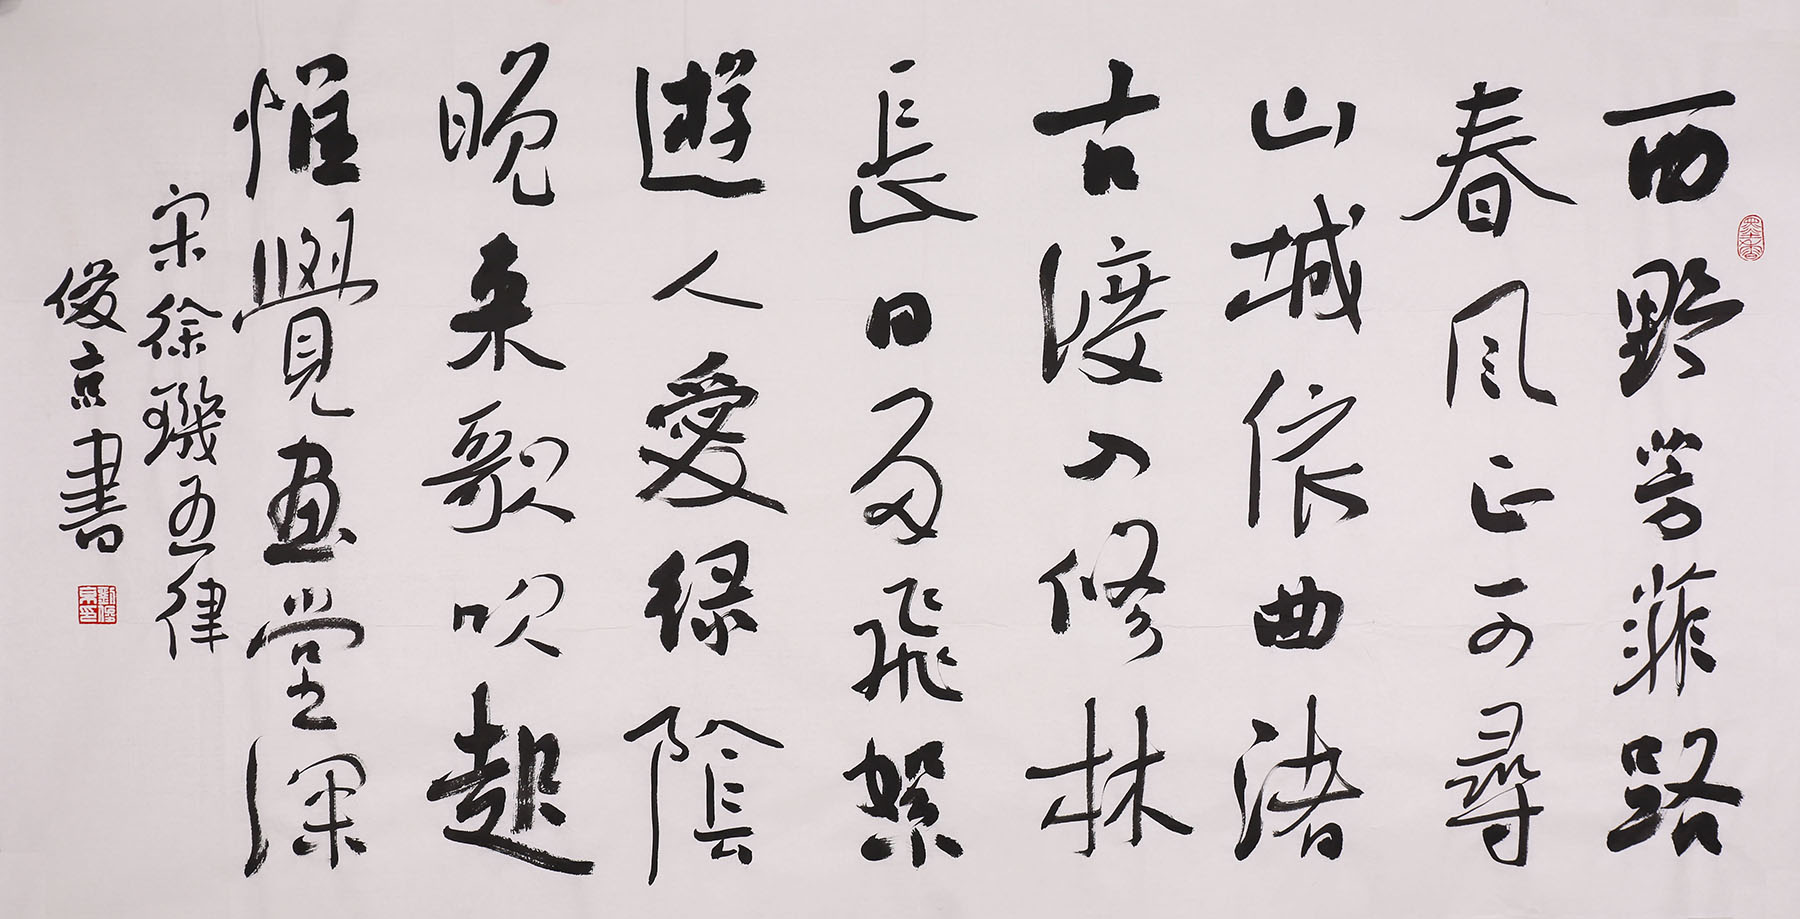 西野芳菲路
春风正可尋
山城依曲渚
古渡入修林
長日多飛絮
遊人愛緑陰
晚来歌吹起
惟覺画堂深
宋徐璣五律
俊京書
墨香
劉俊京印